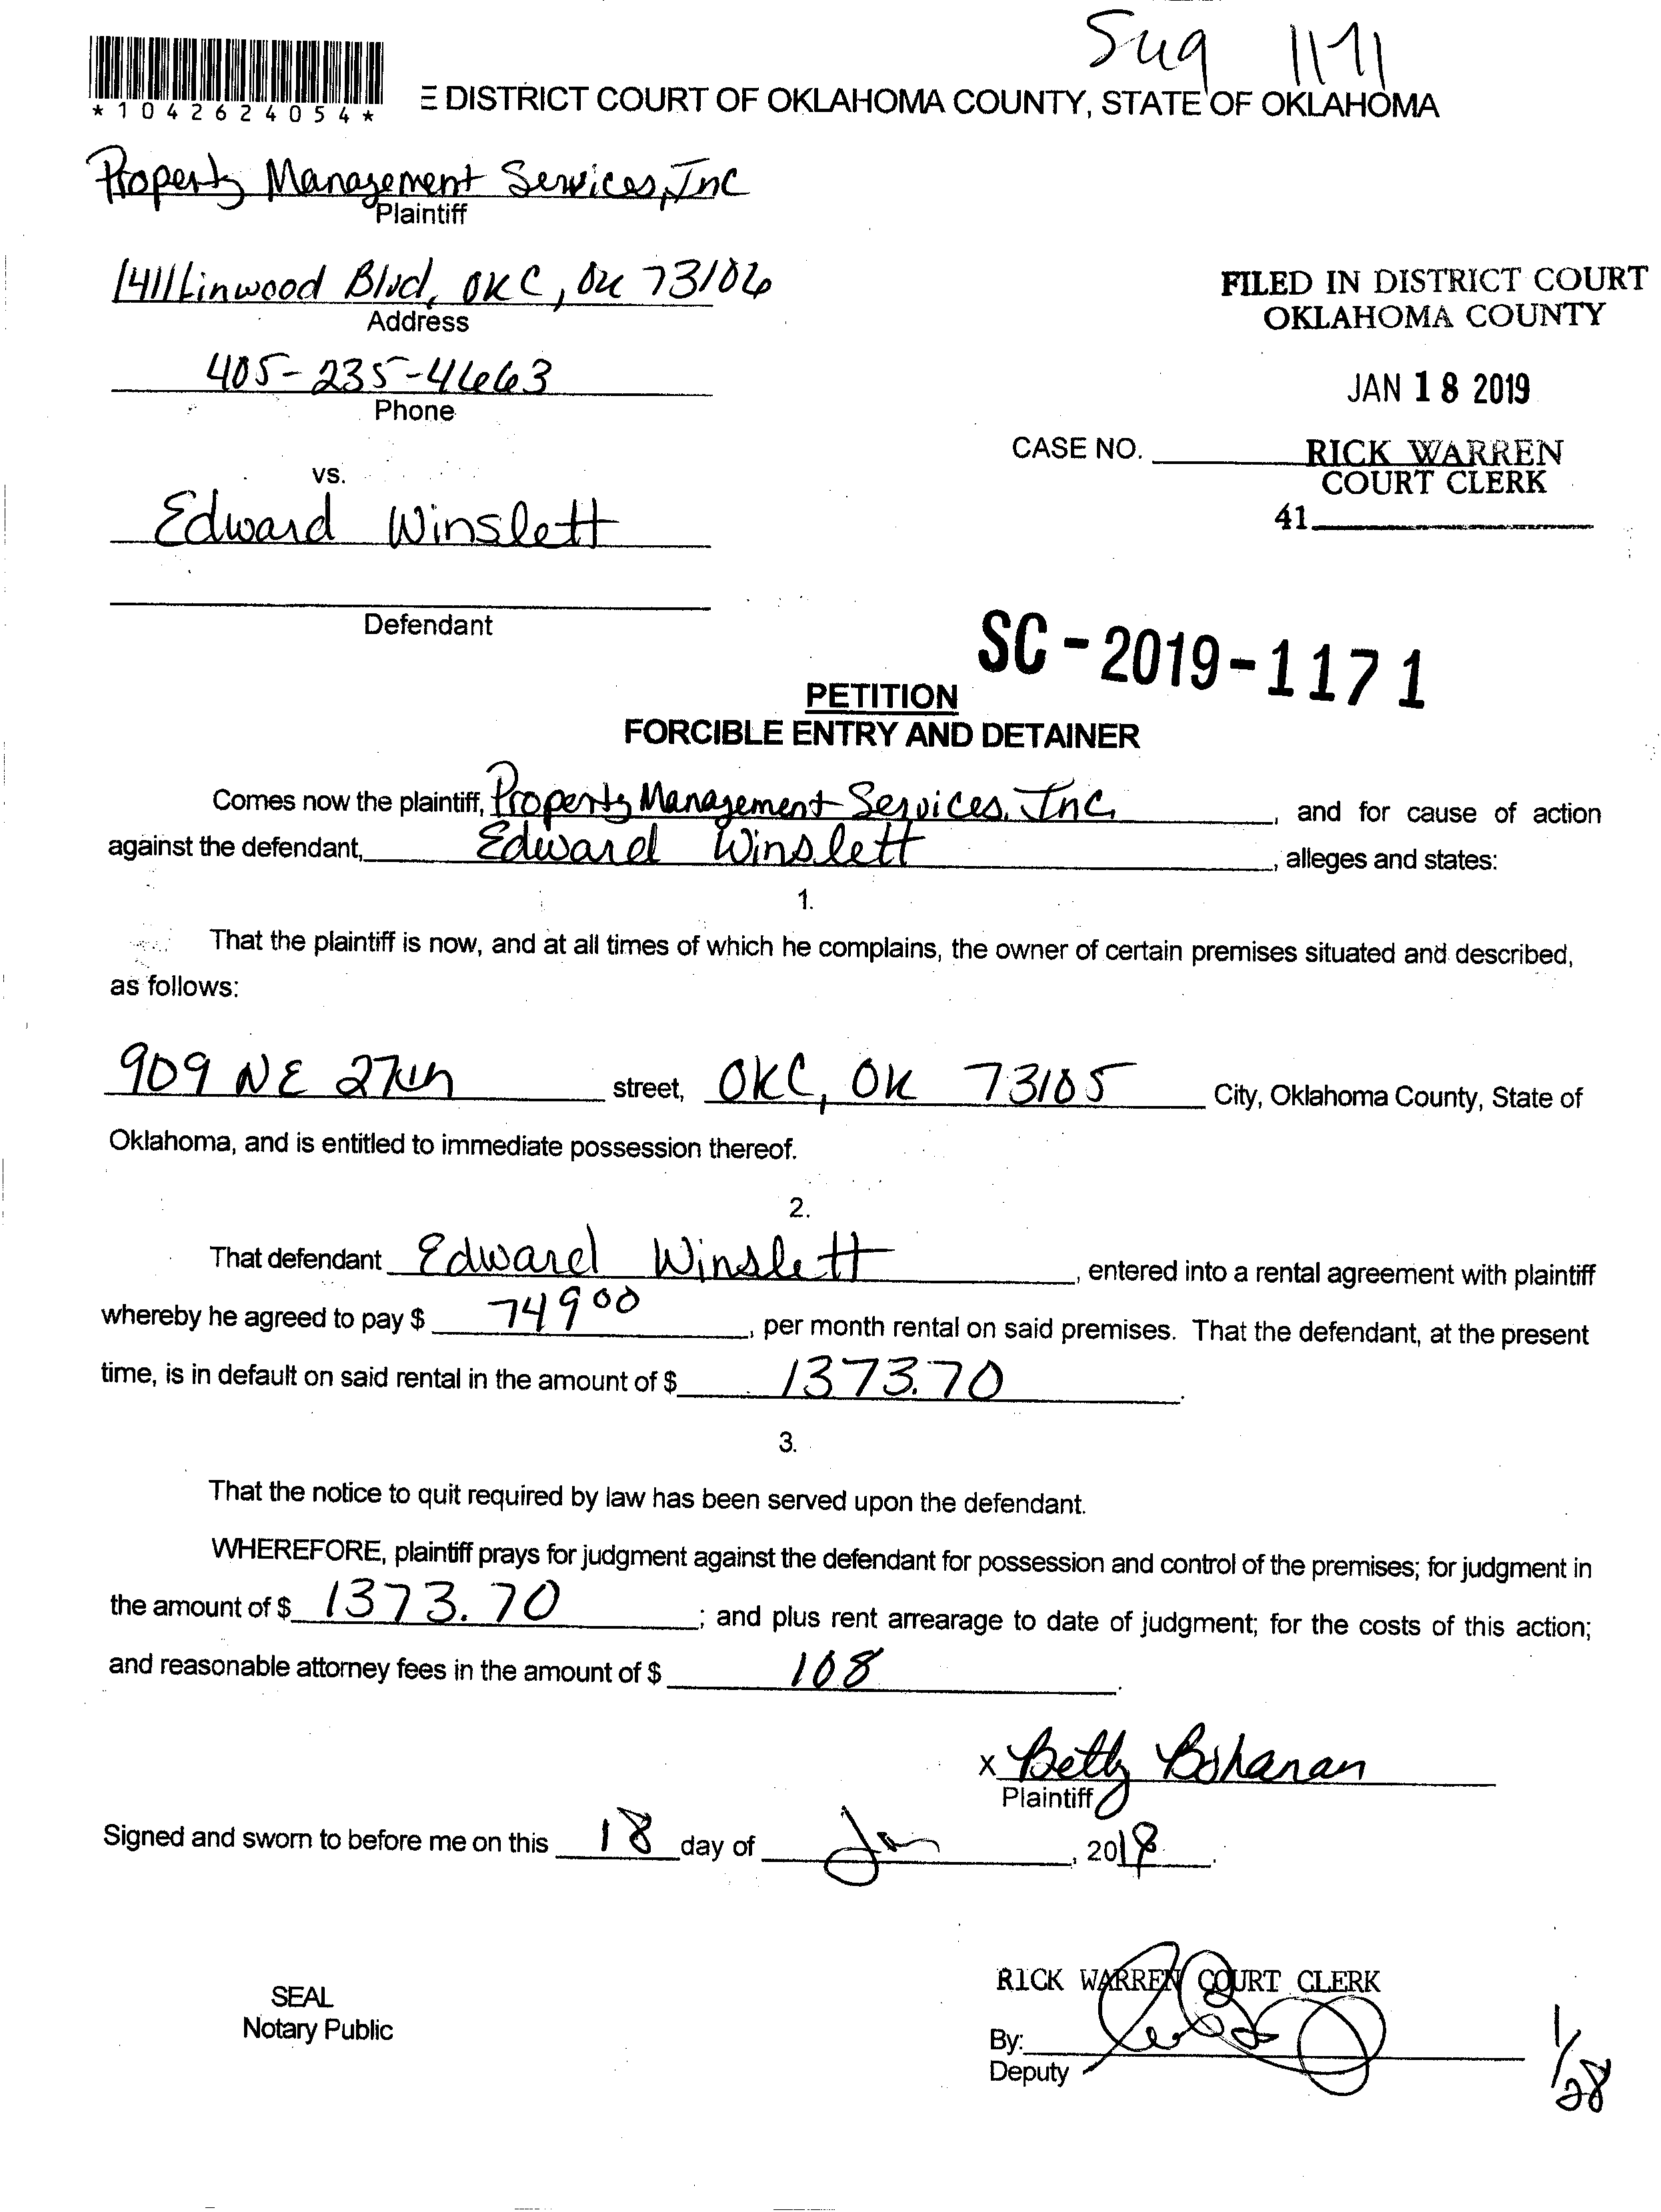 Sug 1171
*1042624054*
E DISTRICT COURT OF OKLAHOMA COUNTY, STATE OF OKLAHOMA
Property Management Services, Inc
Plaintiff
1411 Linwood Blvd, OKC, OK 73106
Address
FILED IN DISTRICT COURT
OKLAHOMA COUNTY
405-235-4663
Phone
JAN 18 2019
CASE NO.
RICK WARREN
COURT CLERK
vs.
41
Edward Winslett
Defendant
SC-2019-1171
PETITION
FORCIBLE ENTRY AND DETAINER
Comes now the plaintiff, Property Management Services, Inc., and for cause of action
against the defendant, Edward Winslett, alleges and states:
1.
That the plaintiff is now, and at all times of which he complains, the owner of certain premises situated and described,
as follows:
909 NE 27th street, OKC, OK 73105 City, Oklahoma County, State of
Oklahoma, and is entitled to immediate possession thereof.
2.
That defendant Edward Winslett, entered into a rental agreement with plaintiff
whereby he agreed to pay $ 749 00, per month rental on said premises. That the defendant, at the present
time, is in default on said rental in the amount of $ 1373.70.
3.
That the notice to quit required by law has been served upon the defendant.
WHEREFORE, plaintiff prays for judgment against the defendant for possession and control of the premises; for judgment in
the amount of $ 1373.70; and plus rent arrearage to date of judgment; for the costs of this action;
and reasonable attorney fees in the amount of $ 108.
x Betty Bohanan
Plaintiff
Signed and sworn to before me on this 18 day of Jan, 2018.
RICK WARREN COURT CLERK
SEAL
Notary Public
By:
Deputy
1/28